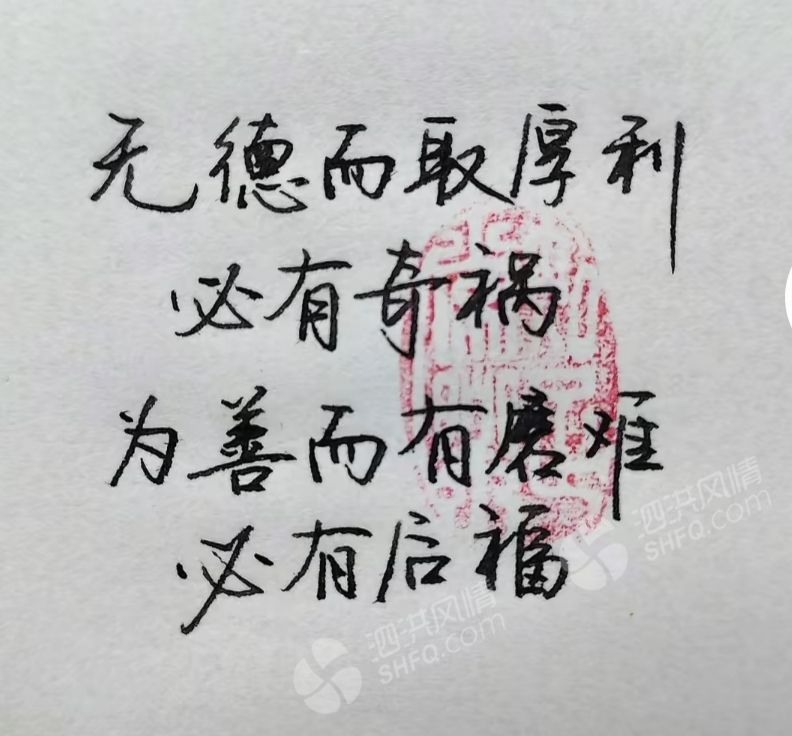 无德而取厚利
必有奇祸
为善而有磨难
必有后福
泗洪风情
SHFQ.com
泗洪风情
SHFQ.com